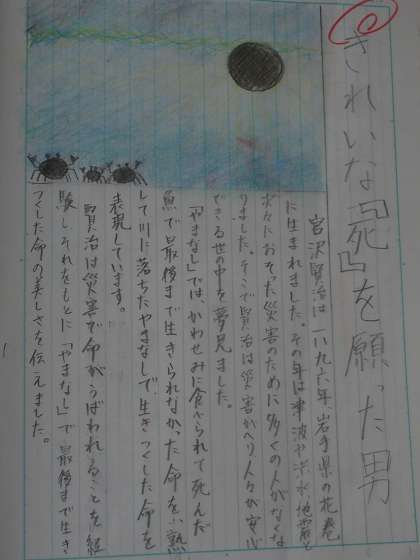 きれいな『死』を願った男
宮沢賢治は一八九六年、岩手県の花巻
に生まれました。その年は津波や洪水、地震と
次々におそった災害のために多くの人がなくな
りました。そこで賢治は災害がへり人々が安心
できる世の中を夢見ました。
「やまなし」では、かわせみに食べられて死んだ
魚で最後まで生きられなかった命を、熟
して川に落ちたやまなしで生きつくした命を
表現しています。
賢治は災害で命がうばわれることを経
験し、それをもとに「やまなし」で最後まで生き
つくした命の美しさを伝えました。